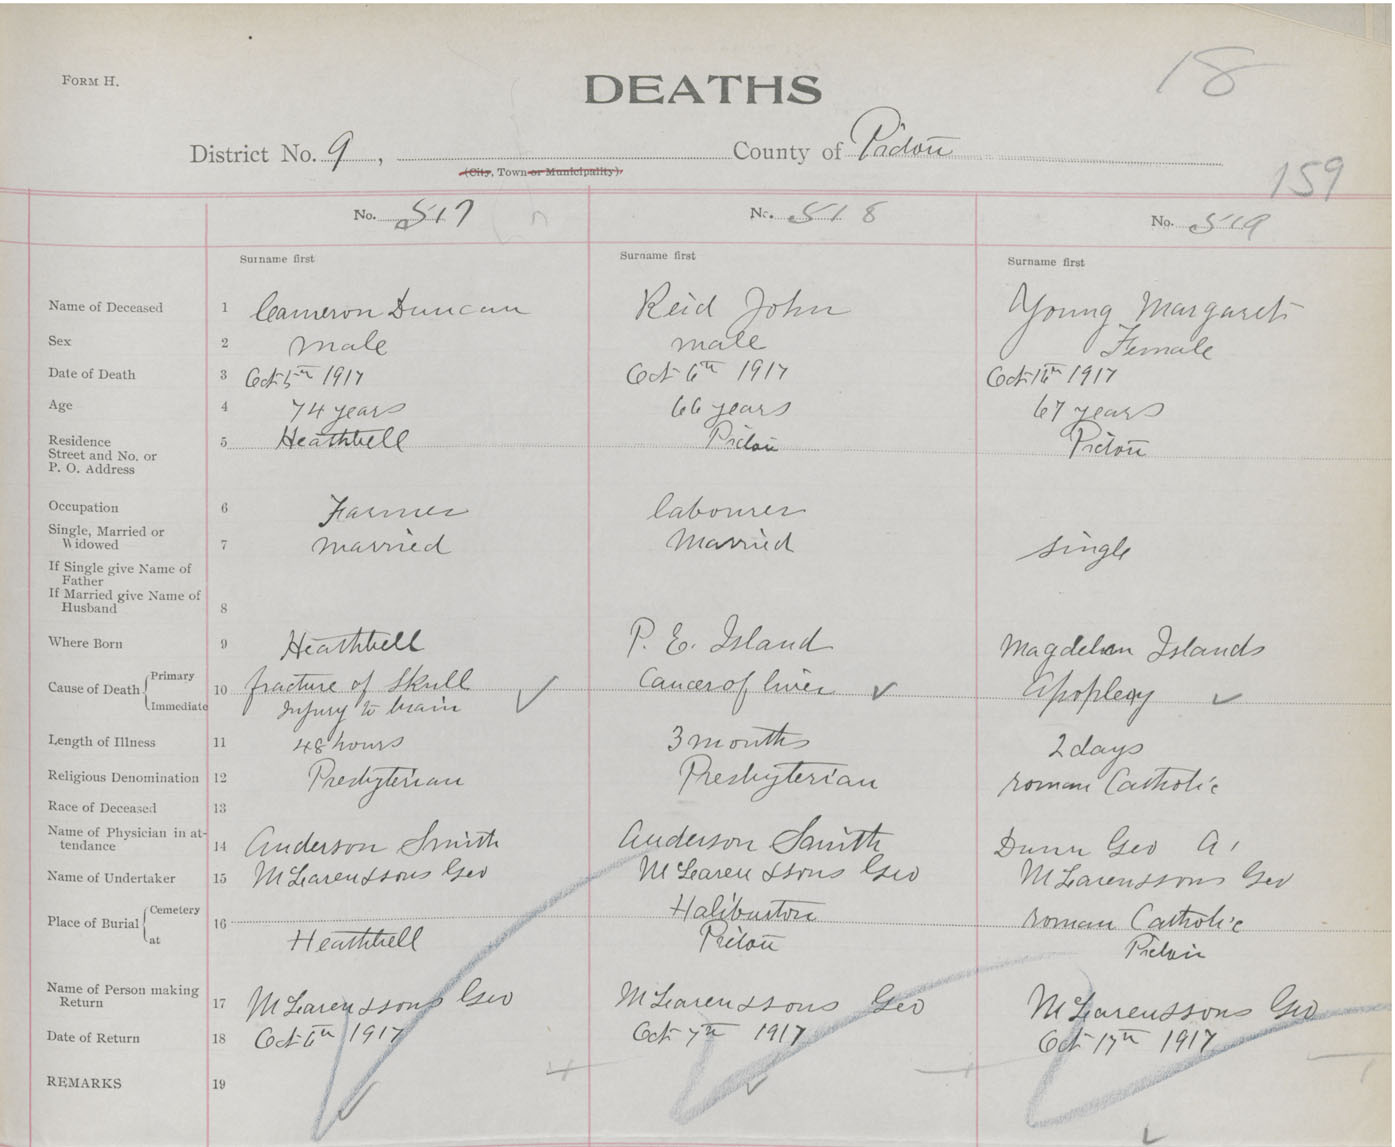 18
FORM H.
DEATHS
District No. 9, County of Pictou
(City, Town or Municipality)
159
No. 517 No. 518 No. 519
Surname first Surname first Surname first
Name of Deceased 1 Cameron Duncan Reid John Young Margaret
Sex 2 male male Female
Date of Death 3 Oct 5th 1917 Oct 6th 1917 Oct 16th 1917
Age 4 74 years 66 years 67 years
Residence
Street and No. or 5 Heathbell Pictou Pictou
P. O. Address
Occupation 6 Farmer labourer
Single, Married or
Widowed 7 married Married single
If Single give Name of
Father
If Married give Name of
Husband 8
Where Born 9 Heathbell P. E. Island Magdelen Islands
Cause of Death Primary 10 fracture of Skull Cancer of liver Apoplexy
Immediate Injury to brain
Length of Illness 11 48 hours 3 months 2 days
Religious Denomination 12 Presbyterian Presbyterian roman Catholic
Race of Deceased 13
Name of Physician in at-
tendance 14 Anderson Smith Anderson Smith Dunn Geo A.
Name of Undertaker 15 McLaren & sons Geo McLaren & sons Geo McLaren & sons Geo
Place of Burial Cemetery 16 Haliburton roman Catholic
at Heathbell Pictou Pictou
Name of Person making
Return 17 McLaren & sons Geo McLaren & sons Geo McLaren & sons Geo
Date of Return 18 Oct 6th 1917 Oct 7th 1917 Oct 17th 1917
REMARKS 19